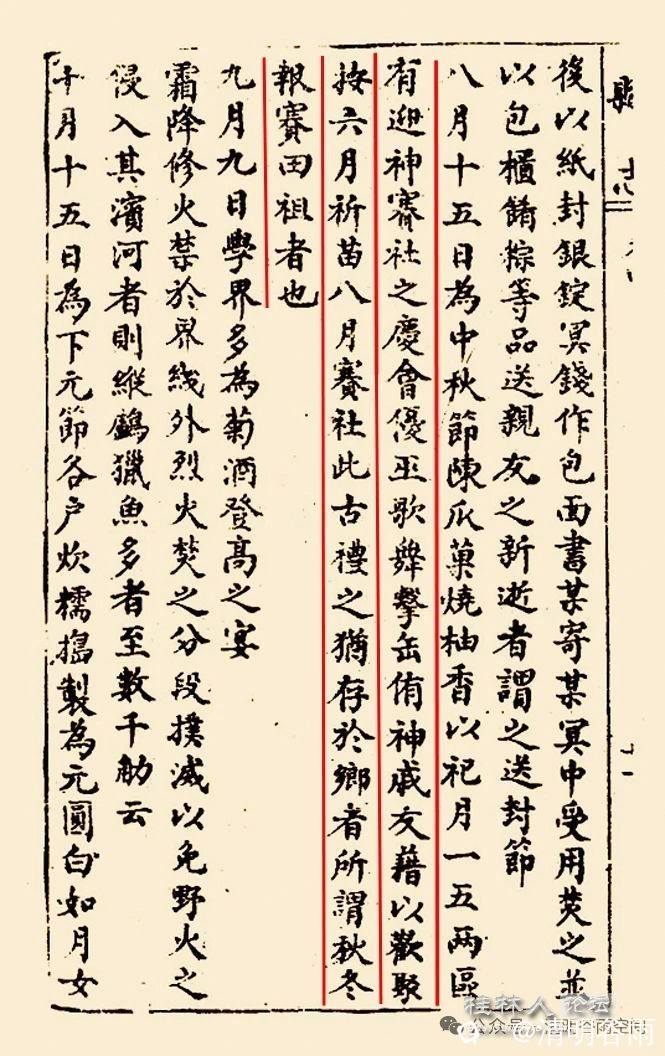 後以紙封銀錠冥錢作包面書某寄某冥中受用焚之並
以包櫃餚粽等品送親友之新逝者謂之送封節
八月十五日為中秋節陳瓜菓燒柚香以祀月一五两區
有迎神賽社之慶會優巫歌舞擊缶侑神戚友藉以歡聚
按六月祈苗八月賽社此古禮之猶存於鄉者所謂秋冬
報賽田祖者也
九月九日學界多為菊酒登高之宴
霜降修火禁於界綫外烈火焚之分段撲滅以免野火之
侵入其濱河者則縱鸕獵魚多者至數千觔云
十月十五日為下元節各戶炊糯搗製為元圓白如月女
桂林人论坛
公众号
@清明谷雨